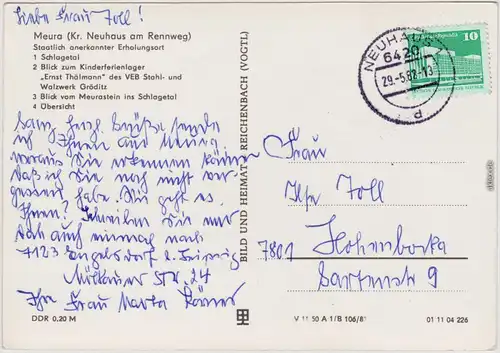 Liebe Frau Zoll!
Meura (Kr. Neuhaus am Rennweg)
Staatlich anerkannter Erholungsort
1 Schlagetal
2 Blick zum Kinderferienlager
„Ernst Thälmann" des VEB Stahl- und
Walzwerk Gröditz
3 Blick vom Meurastein ins Schlagetal
4 Übersicht
Ganz herzl. Grüße sende
ich Ihnen aus Meura
woraus Sie erkennen können
daß ich Sie noch nicht ver-
gessen habe. Wie geht es
Ihnen? Schreiben Sie mir
doch auch einmal nach
7123 Engelsdorf b. Leipzig
Str. 24
Ihre Frau Marta Körner
DDR 0,20 M
BILD UND HEIMAT REICHENBACH (VOGTL)
NEUHAUS
6420
29.-5.82-13
10
Frau
Zoll
7801 Hohenbocka
Gartenstr 9
V 11 50 A 1/B 106/81
01 11 04 226